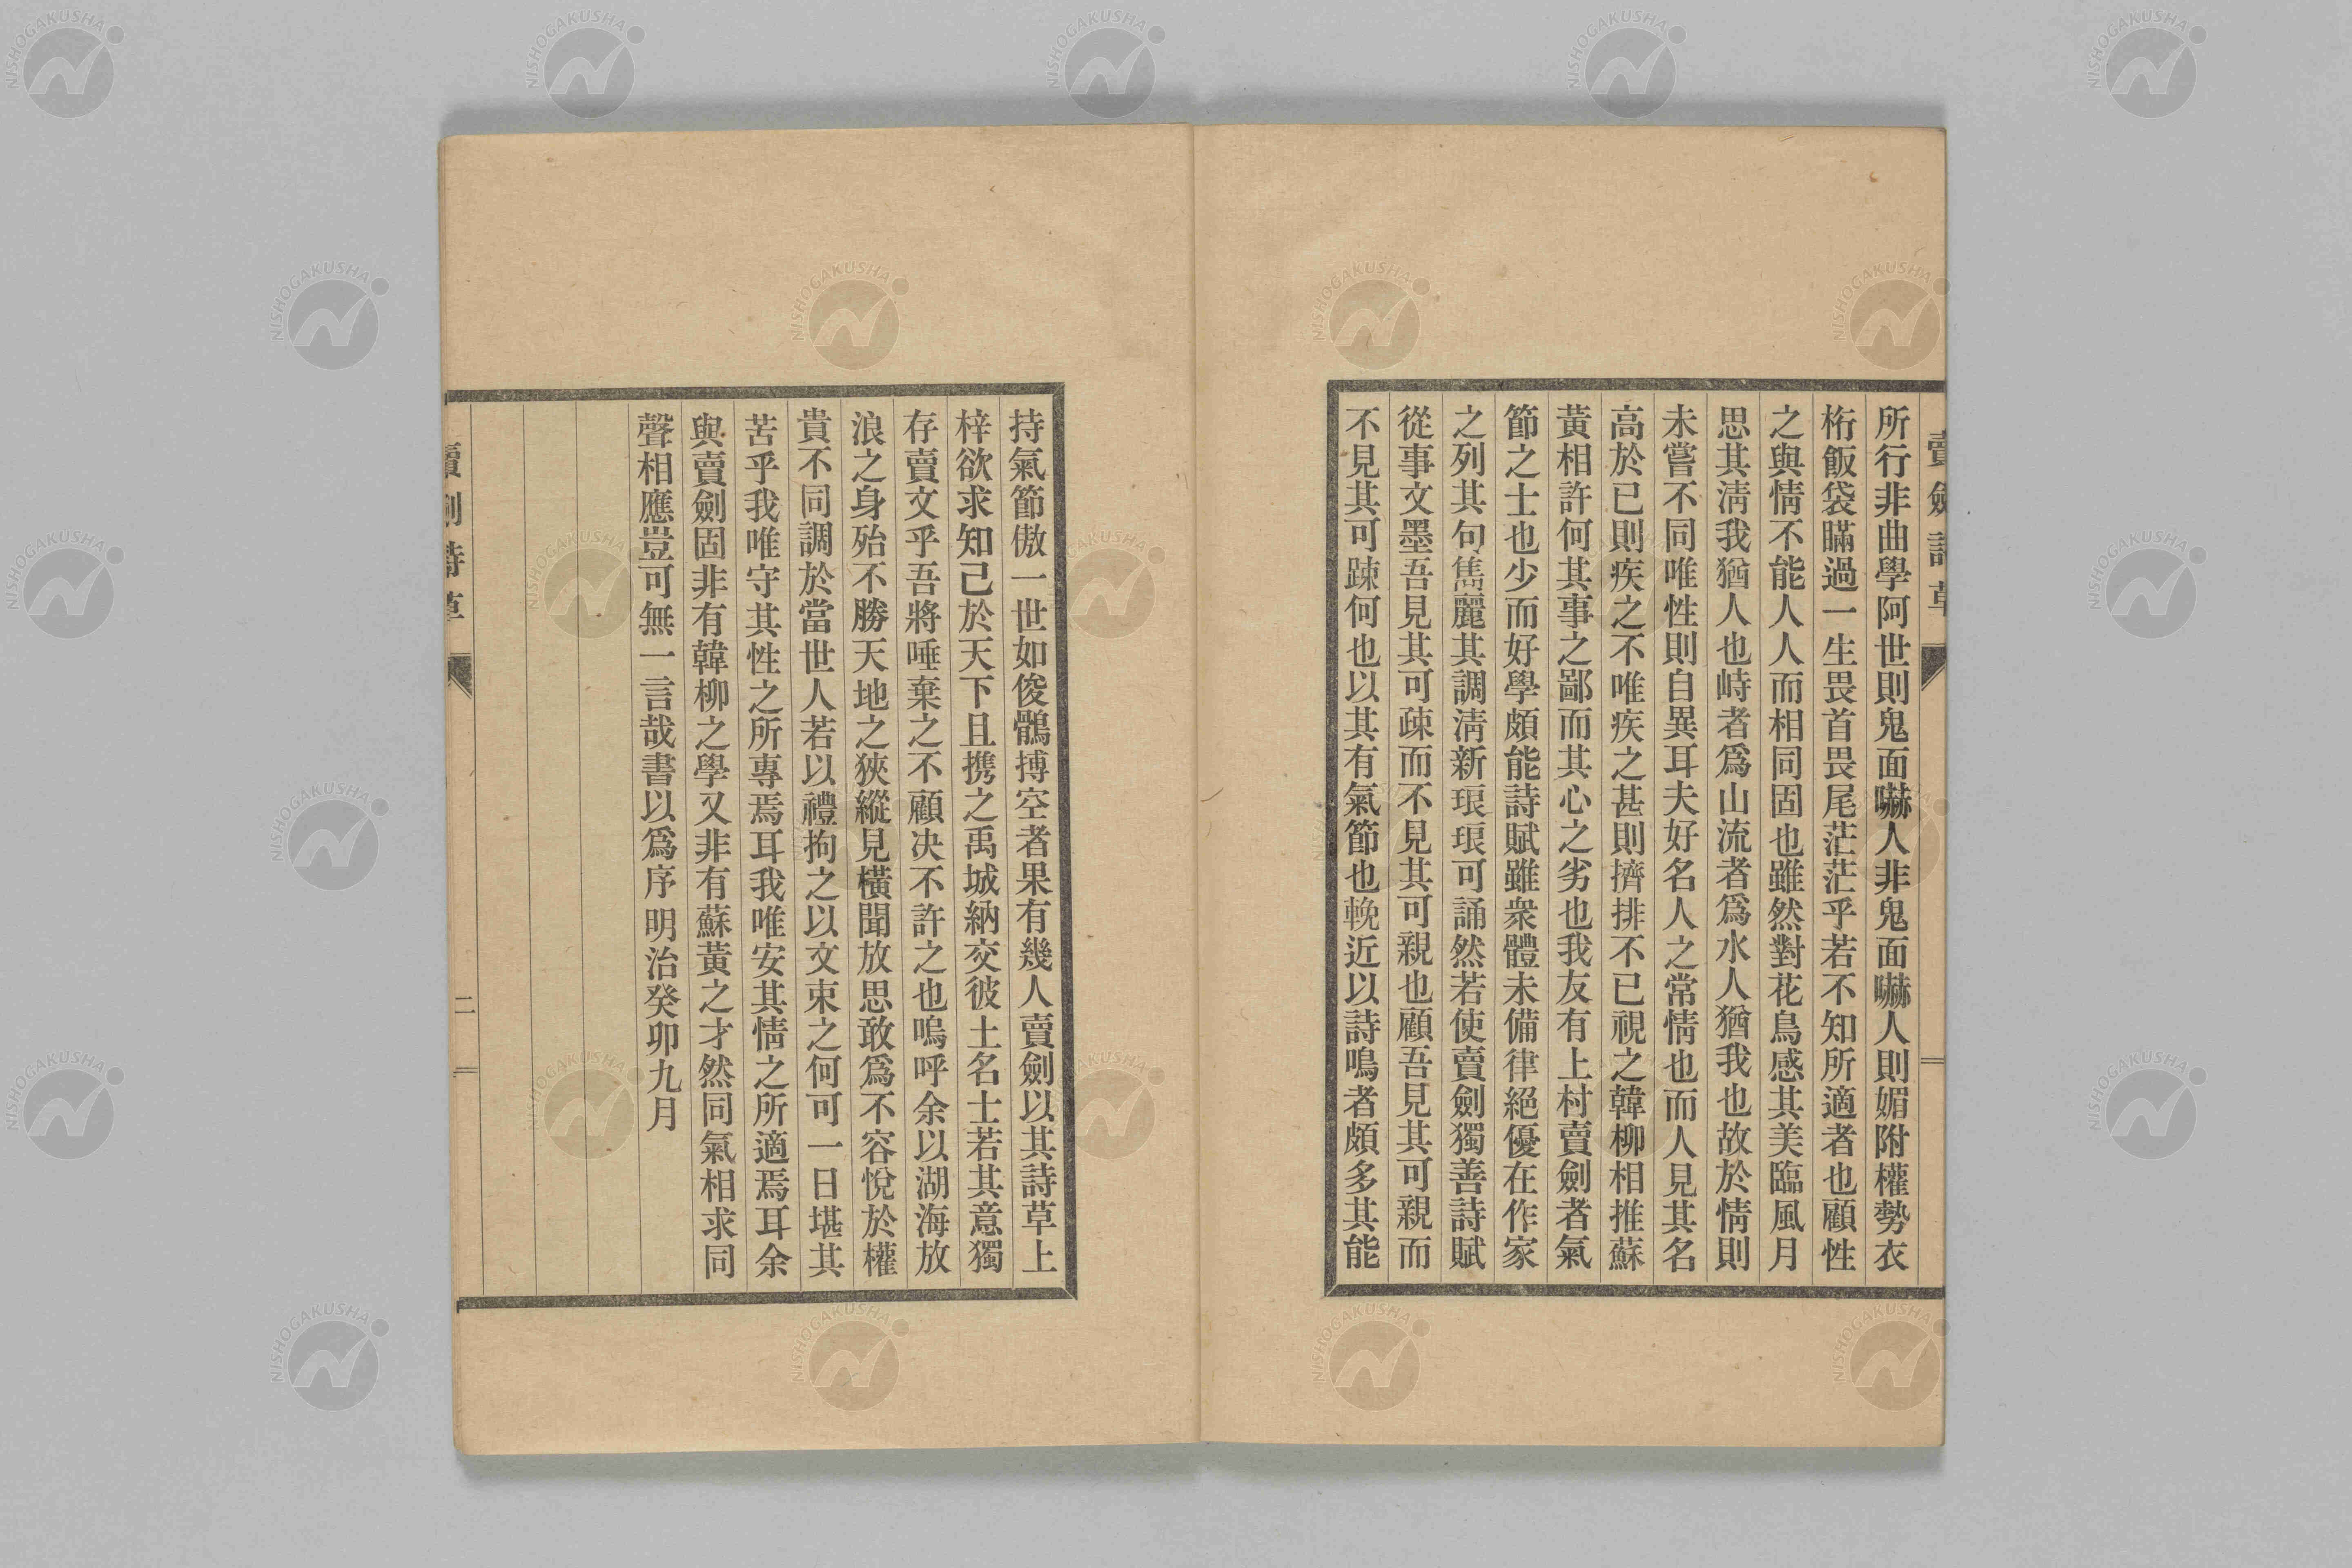 賣劍詩草
所行非曲學阿世則鬼面嚇人非鬼面嚇人則媚附權勢衣
桁飯袋瞞過一生畏首畏尾茫茫乎若不知所適者也顧性
之與情不能人人而相同固也雖然對花鳥感其美臨風月
思其淸我猶人也峙者爲山流者爲水人猶我也故於情則
未嘗不同唯性則自異耳夫好名人之常情也而人見其名
高於已則疾之不唯疾之甚則擠排不已視之韓柳相推蘇
黃相許何其事之鄙而其心之劣也我友有上村賣劍者氣
節之士也少而好學頗能詩賦雖衆體未備律絕優在作家
之列其句雋麗其調淸新琅琅可誦然若使賣劍獨善詩賦
從事文墨吾見其可疎而不見其可親也顧吾見其可親而
不見其可踈何也以其有氣節也輓近以詩鳴者頗多其能
持氣節傲一世如俊鶻搏空者果有幾人賣劍以其詩草上
梓欲求知己於天下且携之禹城納交彼土名士若其意獨
存賣文乎吾將唾棄之不顧决不許之也嗚呼余以湖海放
浪之身殆不勝天地之狹縱見橫聞放思敢爲不容悅於權
貴不同調於當世人若以禮拘之以文束之何可一日堪其
苦乎我唯守其性之所專焉耳我唯安其情之所適焉耳余
與賣劍固非有韓柳之學又非有蘇黃之才然同氣相求同
聲相應豈可無一言哉書以爲序 明治癸卯九月
賣劍詩草
二
NISHOGAKUSHA